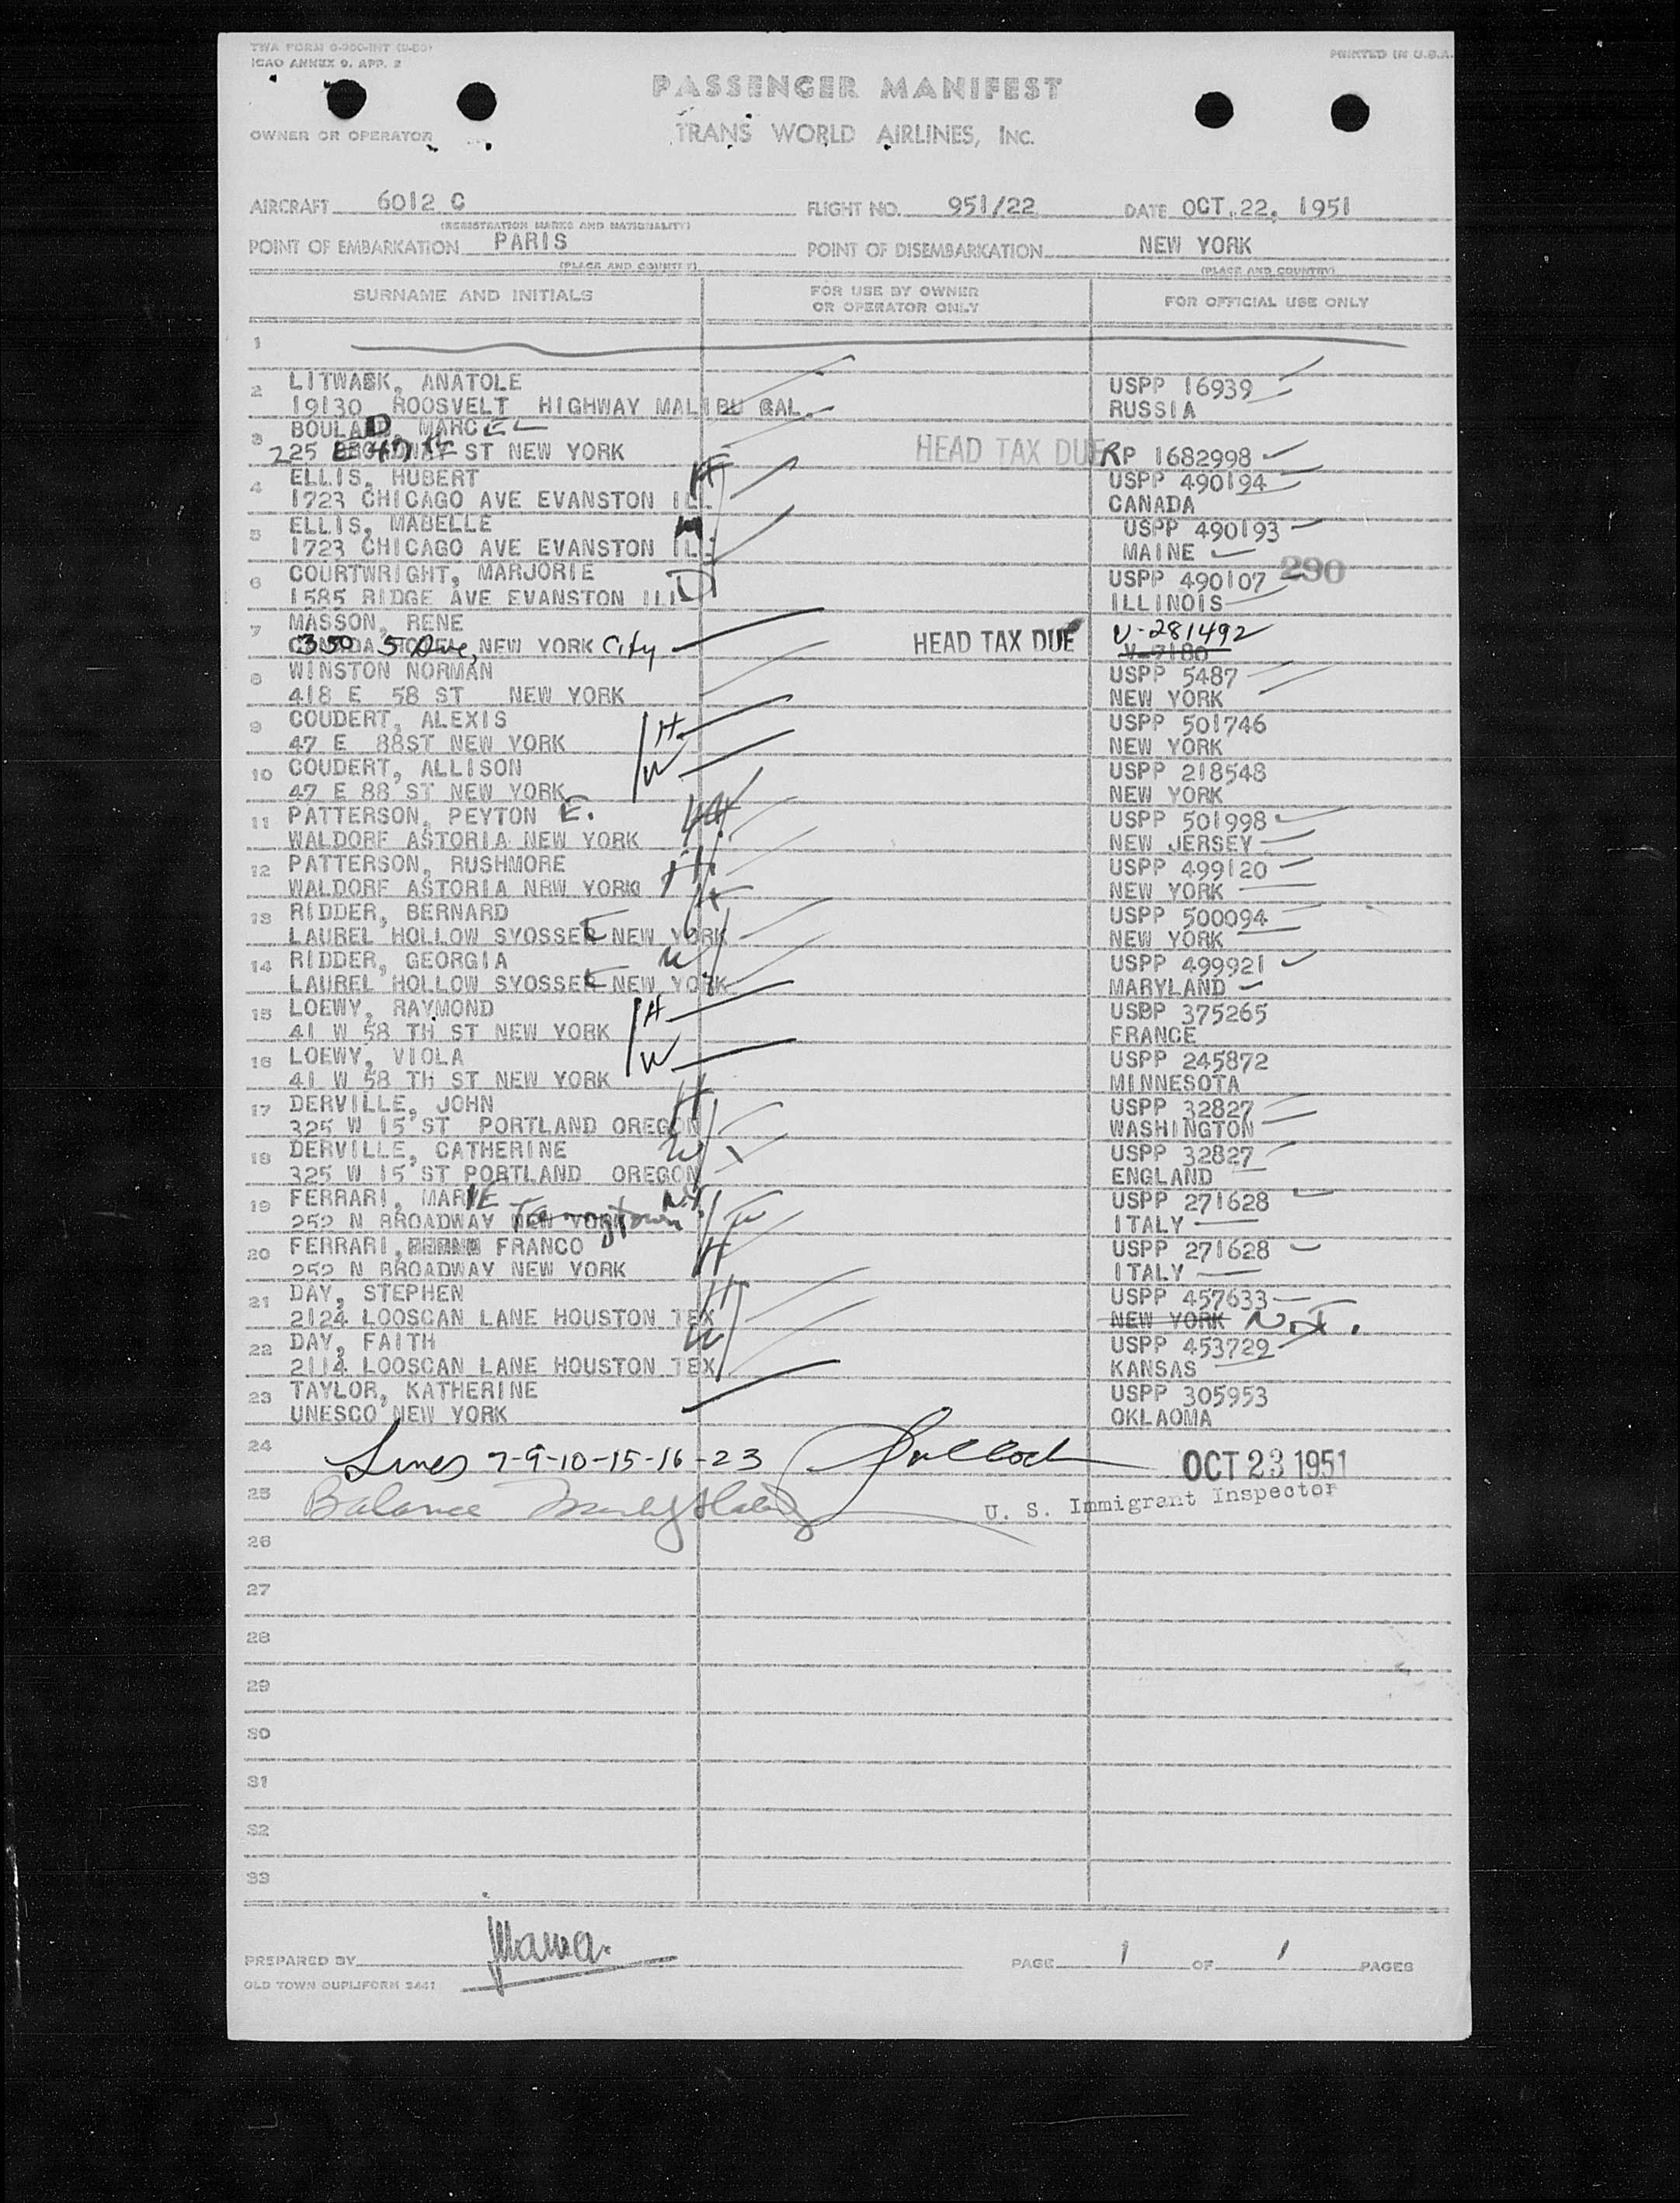 TWA FORM
ICAO ANNEX 9, APP. 2
PRINTED IN U.S.A.
PASSENGER MANIFEST
OWNER OR OPERATOR
TRANS WORLD AIRLINES, INC.
AIRCRAFT 6012 C FLIGHT NO. 951/22 DATE OCT.22, 1951
(REGISTRATION MARKS AND NATIONALITY)
POINT OF EMBARKATION PARIS POINT OF DISEMBARKATION NEW YORK
(PLACE AND COUNTRY) (PLACE AND COUNTRY)
SURNAME AND INITIALS FOR USE BY OWNER OR OPERATOR ONLY FOR OFFICIAL USE ONLY
1
2 LITWAEK, ANATOLE USPP 16939
19130 ROOSVELT HIGHWAY MALIBU CAL. RUSSIA
3 BOULAD, MARCEL
225 E 47 ST NEW YORK HEAD TAX DUE RP 1682998
4 ELLIS, HUBERT H USPP 490194
1723 CHICAGO AVE EVANSTON ILL CANADA
5 ELLIS, MABELLE USPP 490193
1723 CHICAGO AVE EVANSTON ILL MAINE
6 COURTWRIGHT, MARJORIE D USPP 490107 290
1585 RIDGE AVE EVANSTON ILL ILLINOIS
7 MASSON, RENE V-281492
350 5 Ave, NEW YORK City HEAD TAX DUE V-7180
8 WINSTON NORMAN USPP 5487
418 E 58 ST NEW YORK NEW YORK
9 COUDERT, ALEXIS H USPP 501746
47 E 88ST NEW YORK NEW YORK
10 COUDERT, ALLISON W USPP 218548
47 E 88 ST NEW YORK NEW YORK
11 PATTERSON, PEYTON E. USPP 501998
WALDORF ASTORIA NEW YORK NEW JERSEY
12 PATTERSON, RUSHMORE USPP 499120
WALDORF ASTORIA NRW YORK NEW YORK
13 RIDDER, BERNARD H USPP 500094
LAUREL HOLLOW SYOSSET NEW YORK NEW YORK
14 RIDDER, GEORGIA W USPP 499921
LAUREL HOLLOW SYOSSET NEW YORK MARYLAND
15 LOEWY, RAYMOND H USPP 375265
41 W 58 TH ST NEW YORK FRANCE
16 LOEWY, VIOLA W USPP 245872
41 W 58 TH ST NEW YORK MINNESOTA
17 DERVILLE, JOHN H USPP 32827
325 W 15 ST PORTLAND OREGON WASHINGTON
18 DERVILLE, CATHERINE W USPP 32827
325 W 15 ST PORTLAND OREGON ENGLAND
19 FERRARI, MARIE N.Y. W USPP 271628
252 N BROADWAY NEW YORK Tarrytown ITALY
20 FERRARI, FRANCO H USPP 271628
252 N BROADWAY NEW YORK ITALY
21 DAY, STEPHEN H USPP 457633
2124 LOOSCAN LANE HOUSTON TEX NEW YORK N.J.
22 DAY, FAITH W USPP 453729
2114 LOOSCAN LANE HOUSTON TEX KANSAS
23 TAYLOR, KATHERINE USPP 305953
UNESCO NEW YORK OKLAOMA
24 Lines 7-9-10-15-16-23 OCT 23 1951
25 Balance U. S. Immigrant Inspector
26
27
28
29
30
31
32
33
PREPARED BY PAGE 1 OF 1 PAGES
OLD TOWN DUPLIFORM